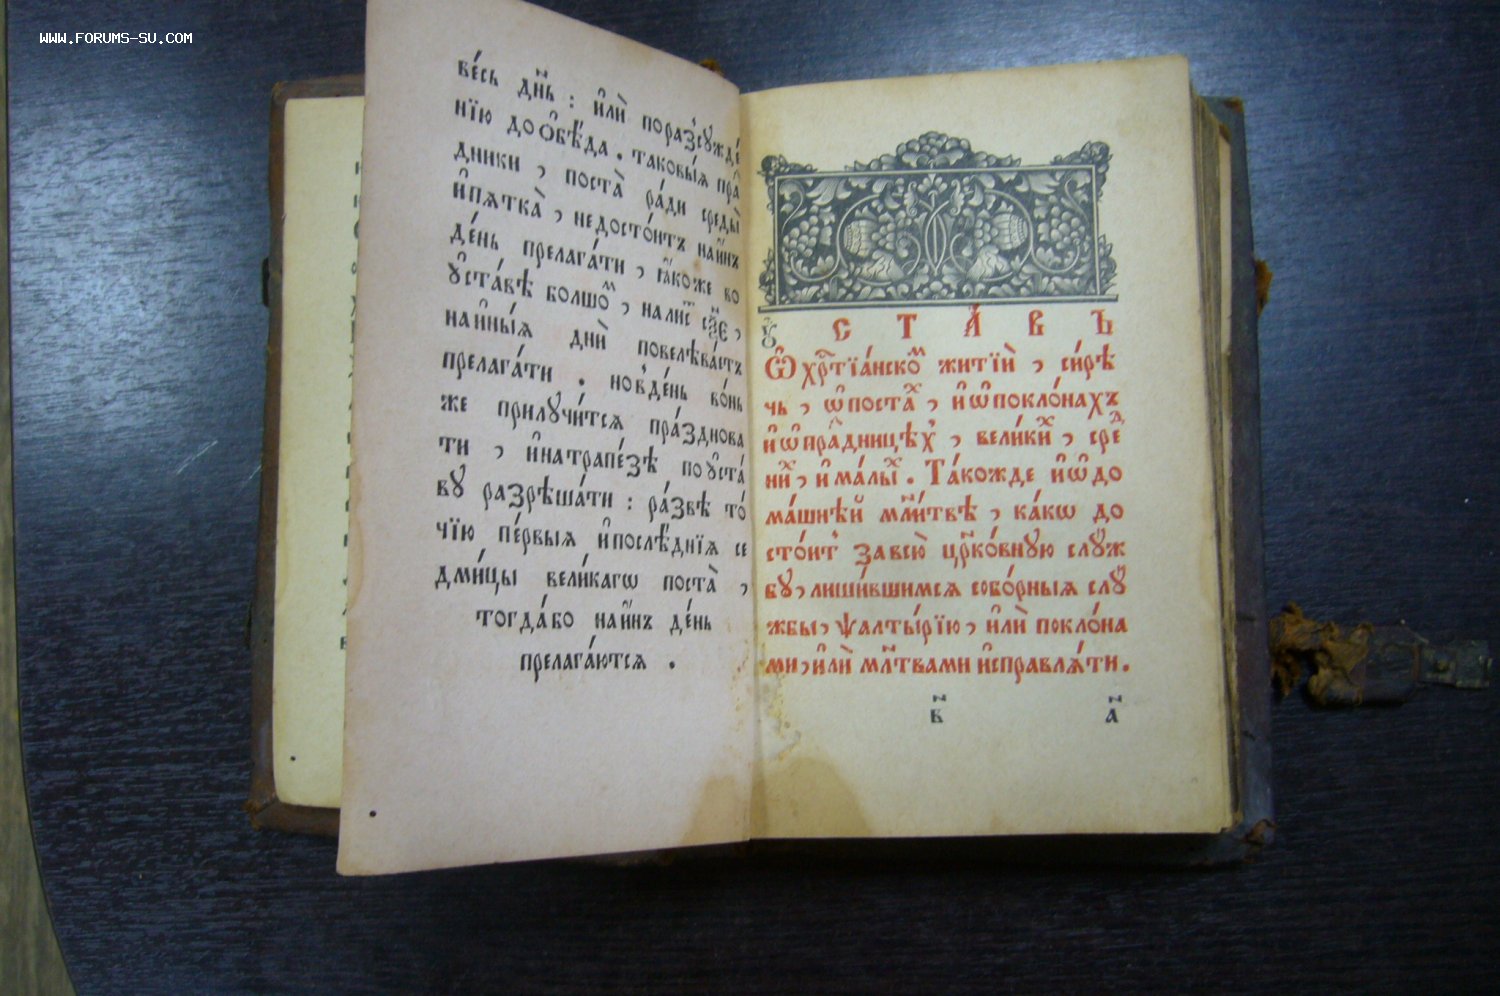 WWW.FORUMS-SU.COM
ве́сь дн҃ь : и҆лѝ поразсꙋжде́
нїю до ѻ҆бѣ́да . таковы́ѧ пра́
дники , поста̀ ра́ди среды̀
и҆пѧтка̀ , недосто́итъ наи҆́нъ
де́нь прелага́ти , ꙗ҆́коже во
ᲂу҆ста́вѣ болшо́м , налист с҃ц҃е ,
наи҆ны́ѧ днѝ повелѣва́етъ
прелага́ти . но в̾де́нь во́нь
же прилꙋчи́тсѧ пра́зднова
ти , и҆натрапе́зѣ поᲂу҆ста́
вꙋ разрѣша́ти : ра́звѣ то́
чїю пе́рвыѧ и҆послѣ́днїѧ се
дми́цы вели́кагѡ поста̀ ,
тогда́бо наи҆́нъ де́нь
прелага́ютсѧ .
ᲂу҆ С Т А́ В Ъ
Ѽ хрⷭ҇тїа́нскоⷨ житїѝ , си́рѣ
чь , ѡ҆постаⷯ , и҆ѡ҆покло́нахъ
и҆ѡ҆праⷥдницѣⷯ , вели́киⷯ , среⷣ
ниⷯ , и҆ма́лыⷯ . Та́кожде и҆ѡ҆до
ма́шнѣй мл҃и́твѣ , ка́кѡ до
сто́ит̾ завсю̀ цр҃ко́внꙋю слꙋ́ж
бꙋ , лиши́вшимсѧ собо́рныѧ слꙋ́
жбы , ѱалты́рїю , и҆лѝ покло́на
ми , и҆лѝ мл҃твами и҆справлѧ́ти .
в҃ а҃